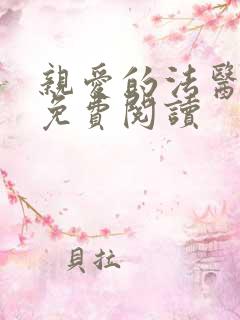 親愛的法醫
免費閱讀
貝拉